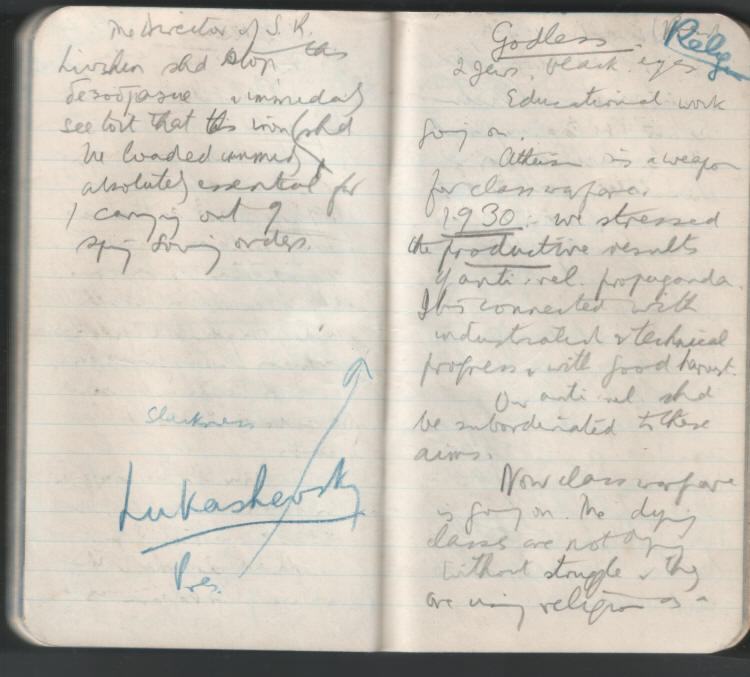 The Director of S. K.
shd stop this
безобразие & immediately
see to it that this iron shd
be loaded immed.
absolutely essential for
carrying out of
spring sowing orders.
Slackness
Lukashevsky
Pres.
Relig
Godless
2 Jews, black eyes
Educational work
going on.
Atheism is a weapon
for class warfare.
1930 - we stressed
the productive results
of anti-rel. propaganda.
It is connected with
industrial & technical
progress & with good harvest.
Our anti rel. shd
be subordinated to these
aims.
Now class warfare
is going on. The dying
classes are not dying
without struggle & they
are using religion as a